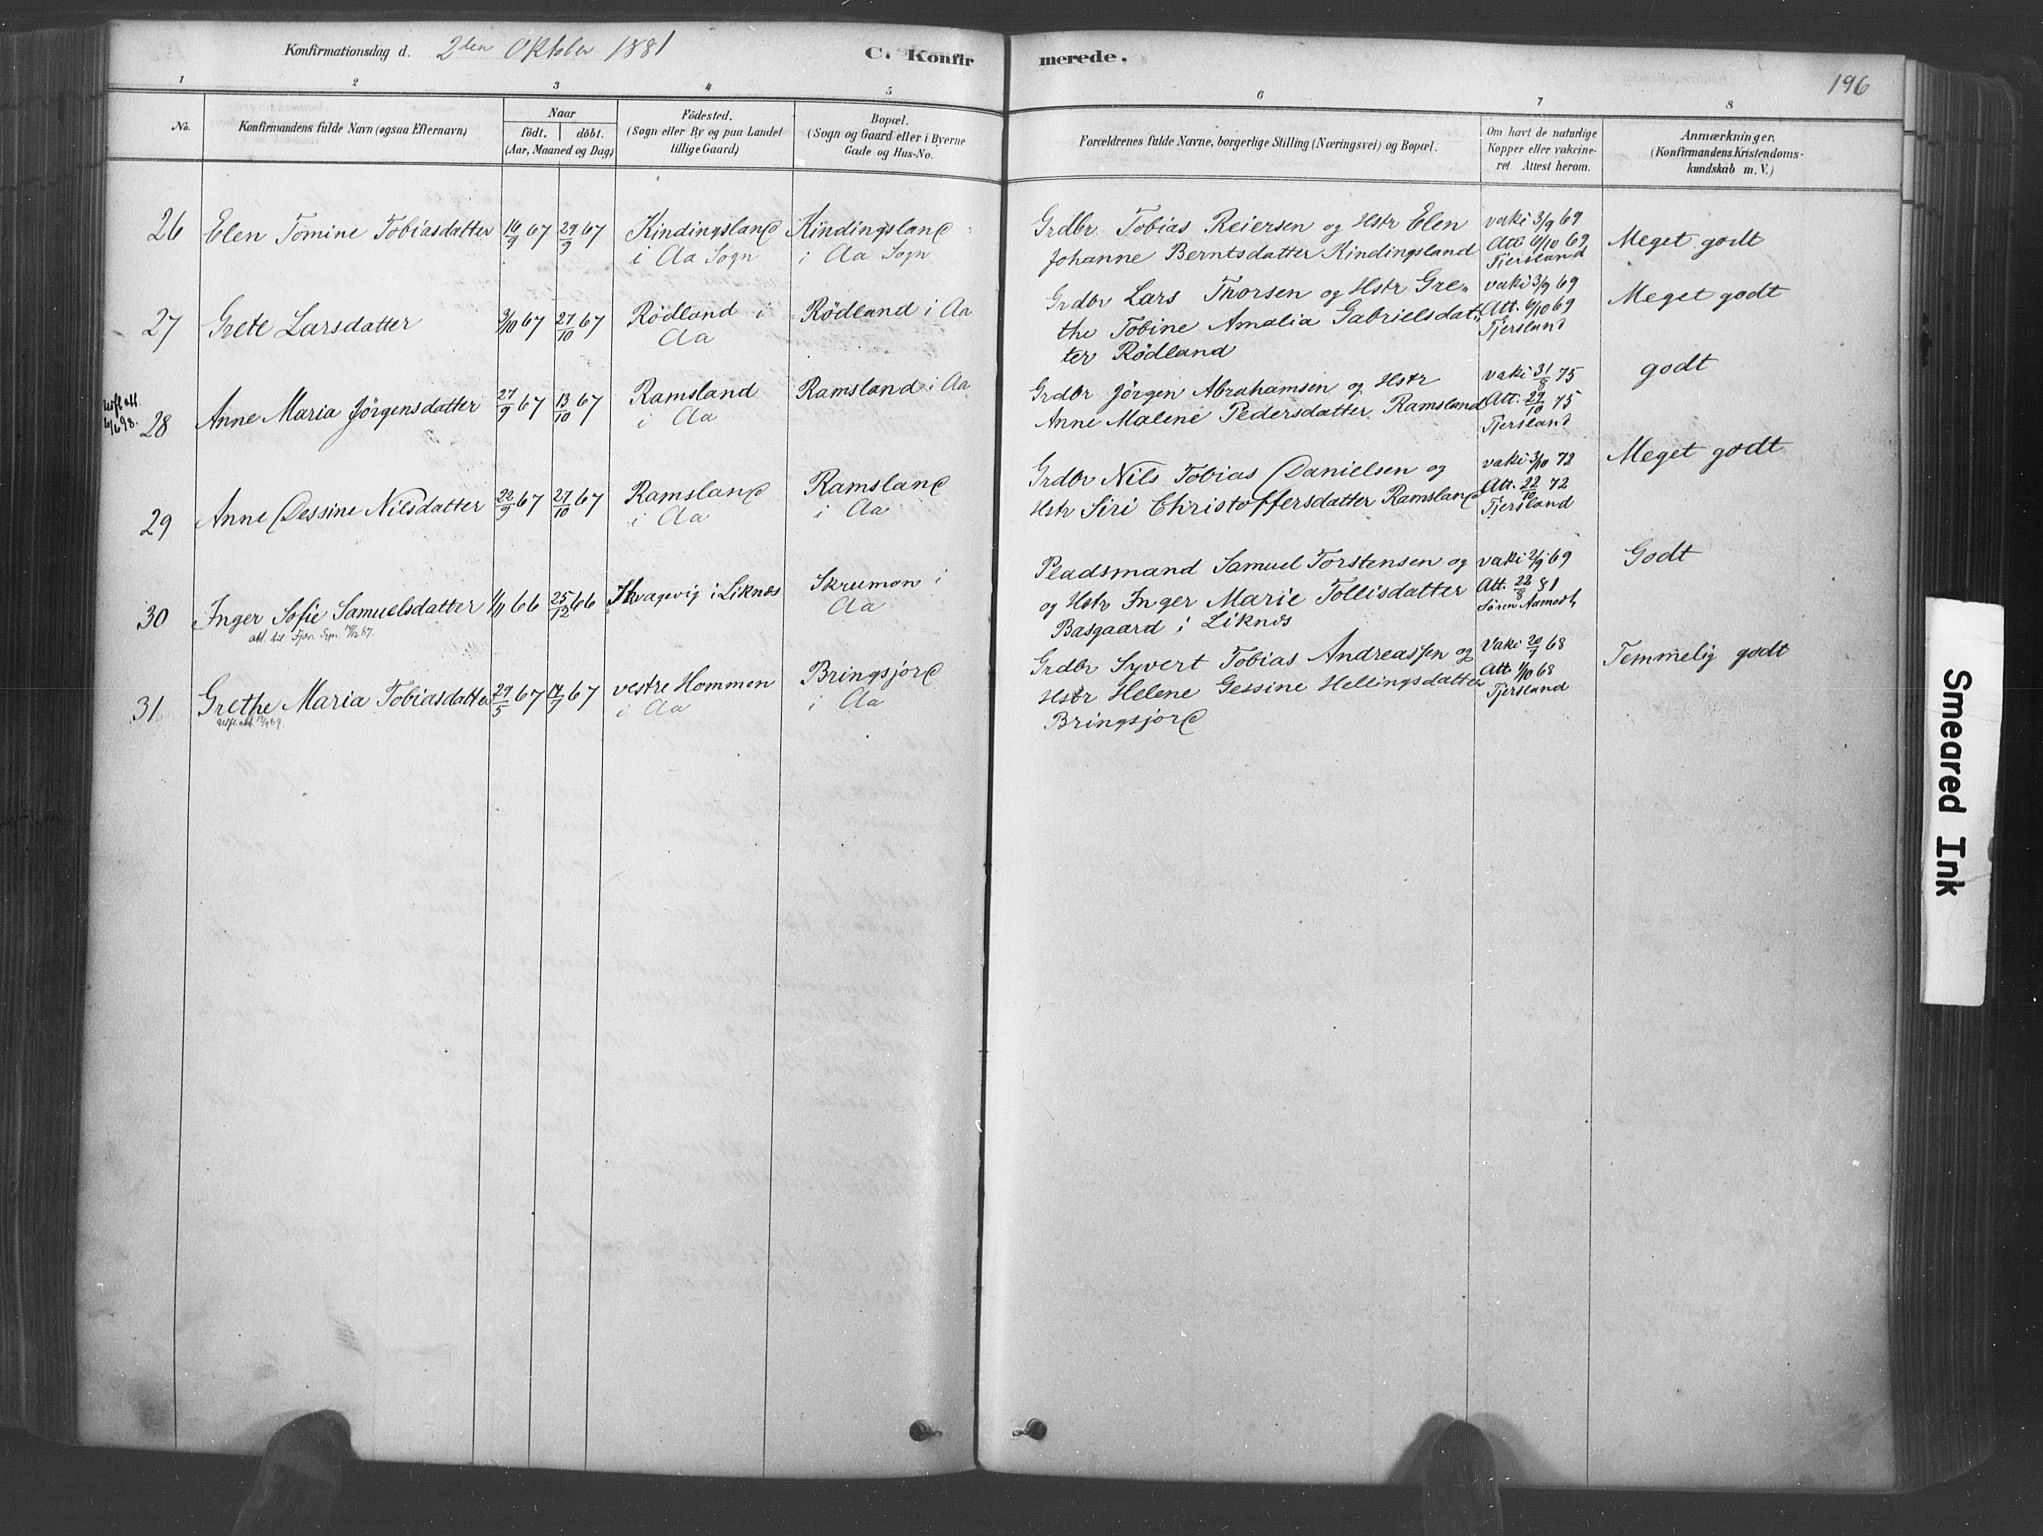 Konfirmationsdag d. 2den Oktober 1881
C. Konfirmerede.
196
1 2 3 4 5 6 7 8
No.
Konfirmandens fulde Navn (ogsaa Efternavn)
Naar
födt. döbt.
(Aar, Maaned og Dag)
Födested.
(Sogn eller By og paa Landet
tillige Gaard)
Bopæl.
(Sogn og Gaard eller i Byerne
Gade og Hus-No.
Forældrenes fulde Navne, borgerlige Stilling (Næringsvei) og Bopæl.
Om havt de naturlige
Kopper eller vakcine-
ret Attest herom.
Anmærkninger.
(Konfirmandens Kristendoms-
kundskab m. V.)
26 Elen Tomine Tobiasdatter 16/9 67 29/9 67
Kindingsland
i Aa Sogn
Kindingsland
i Aa Sogn
Grdbr Tobias Reiersen og Hstr Elen
Johanne Berntsdatter Kindingsland
vaki 3/9 69
Att. 6/10 69
Tjersland
Meget godt
27 Grete Larsdatter 3/10 67 27/10 67
Rödland i
Aa
Rödland i Aa
Grdbr Lars Thorsen og Hstr Gre-
the Tobine Amalia Gabrielsdat-
ter Rödland
vaki 3/9 69
Att. 6/10 69
Tjersland
Meget godt
28 Anne Maria Jörgensdatter 27/9 67 13/10 67
Ramsland
i Aa
Ramsland i Aa
Grdbr Jörgen Abrahamsen og Hstr
Anne Malene Pedersdatter Ramsland
vaki 31/8 75
Att. 29/10 75
Tjersland
godt
29 Anne Dessine Nilsdatter 22/9 67 27/10 67
Ramsland
i Aa
Ramsland
i Aa
Grdbr Nils Tobias Danielsen og
Hstr Siri Christoffersdatter Ramsland
vaki 3/10 72
Att. 22/10 72
Tjersland
Meget godt
30 Inger Sofie Samuelsdatter 1/11 66 25/12 66
i Liknes
Skrumon i
Aa
Pladsmand Samuel Torstensen og
og Hstr Inger Marie Tollisdatter
Basgaard i Liknes
vaki 2/9 69
Att. 22/8 81
Sören Aamodt
Godt
31 Grethe Maria Tobiasdatter 29/5 67 14/7 67
vestre Hommen
i Aa
Bringsjord
i Aa
Grdbr Syvert Tobias Andreassen og
Hstr Helene Gessine Hellingsdatter
Bringsjord
Vaki 20/7 68
Att. 1/10 68
Tjersland
Temmelig godt
Smeared Ink